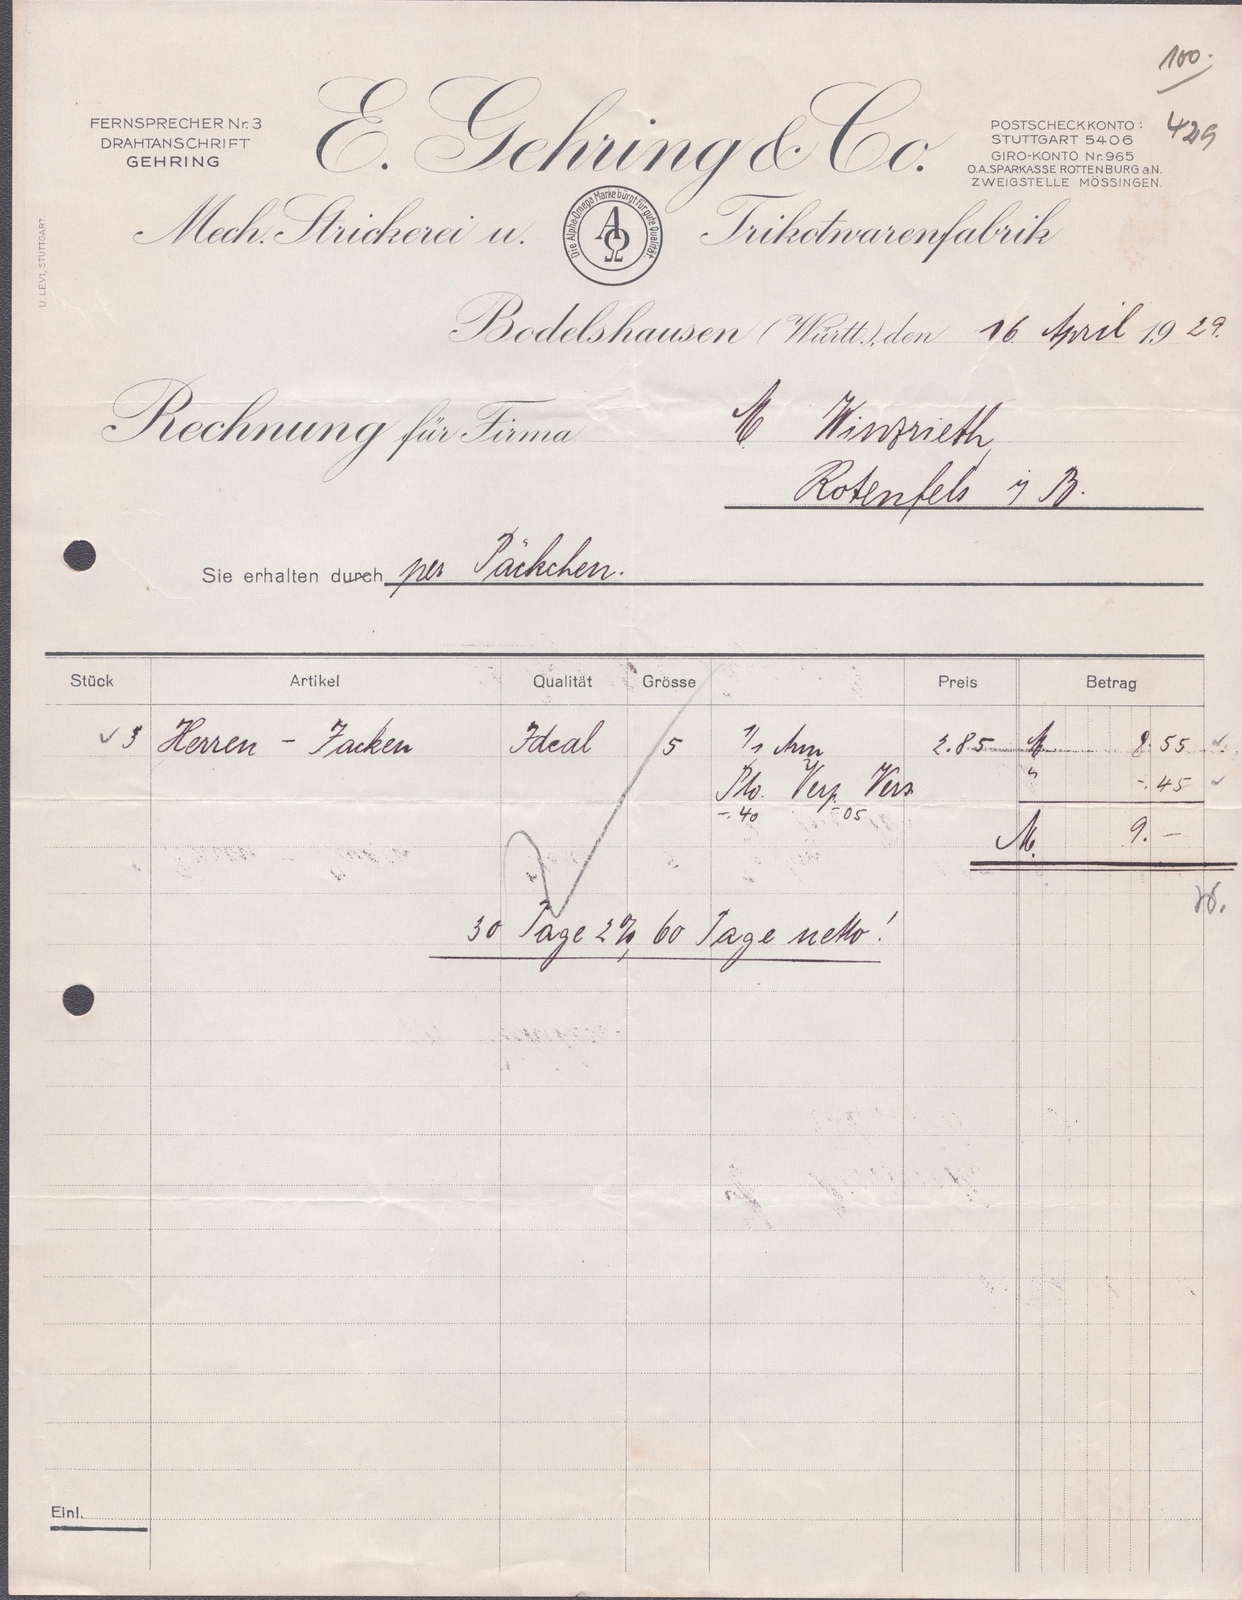 100.
429
FERNSPRECHER Nr. 3
DRAHTANSCHRIFT
GEHRING
E. Gehring & Co.
POSTSCHECKKONTO:
STUTTGART 5406
GIRO-KONTO Nr. 965
O.A. SPARKASSE ROTTENBURG a.N.
ZWEIGSTELLE MÖSSINGEN.
Mech. Strickerei u. Trikotwarenfabrik
Die Alpha-Omega Marke bürgt für gute Qualität.
AΩ
U. LEVI, STUTTGART.
Bodelshausen (Württ.), den 16. April 1929.
Rechnung für Firma M Winzrieth
Rotenfels i/ B.
Sie erhalten durch per Päckchen.
Stück Artikel Qualität Grösse Preis Betrag
3 Herren - Jacken Ideal 5 1/1 Arm 2.85 M 8.55
Pto. Verp. Vers. " -.45
-.40 -.05
M. 9.-
30 Tage 2%, 60 Tage netto!
Einl.